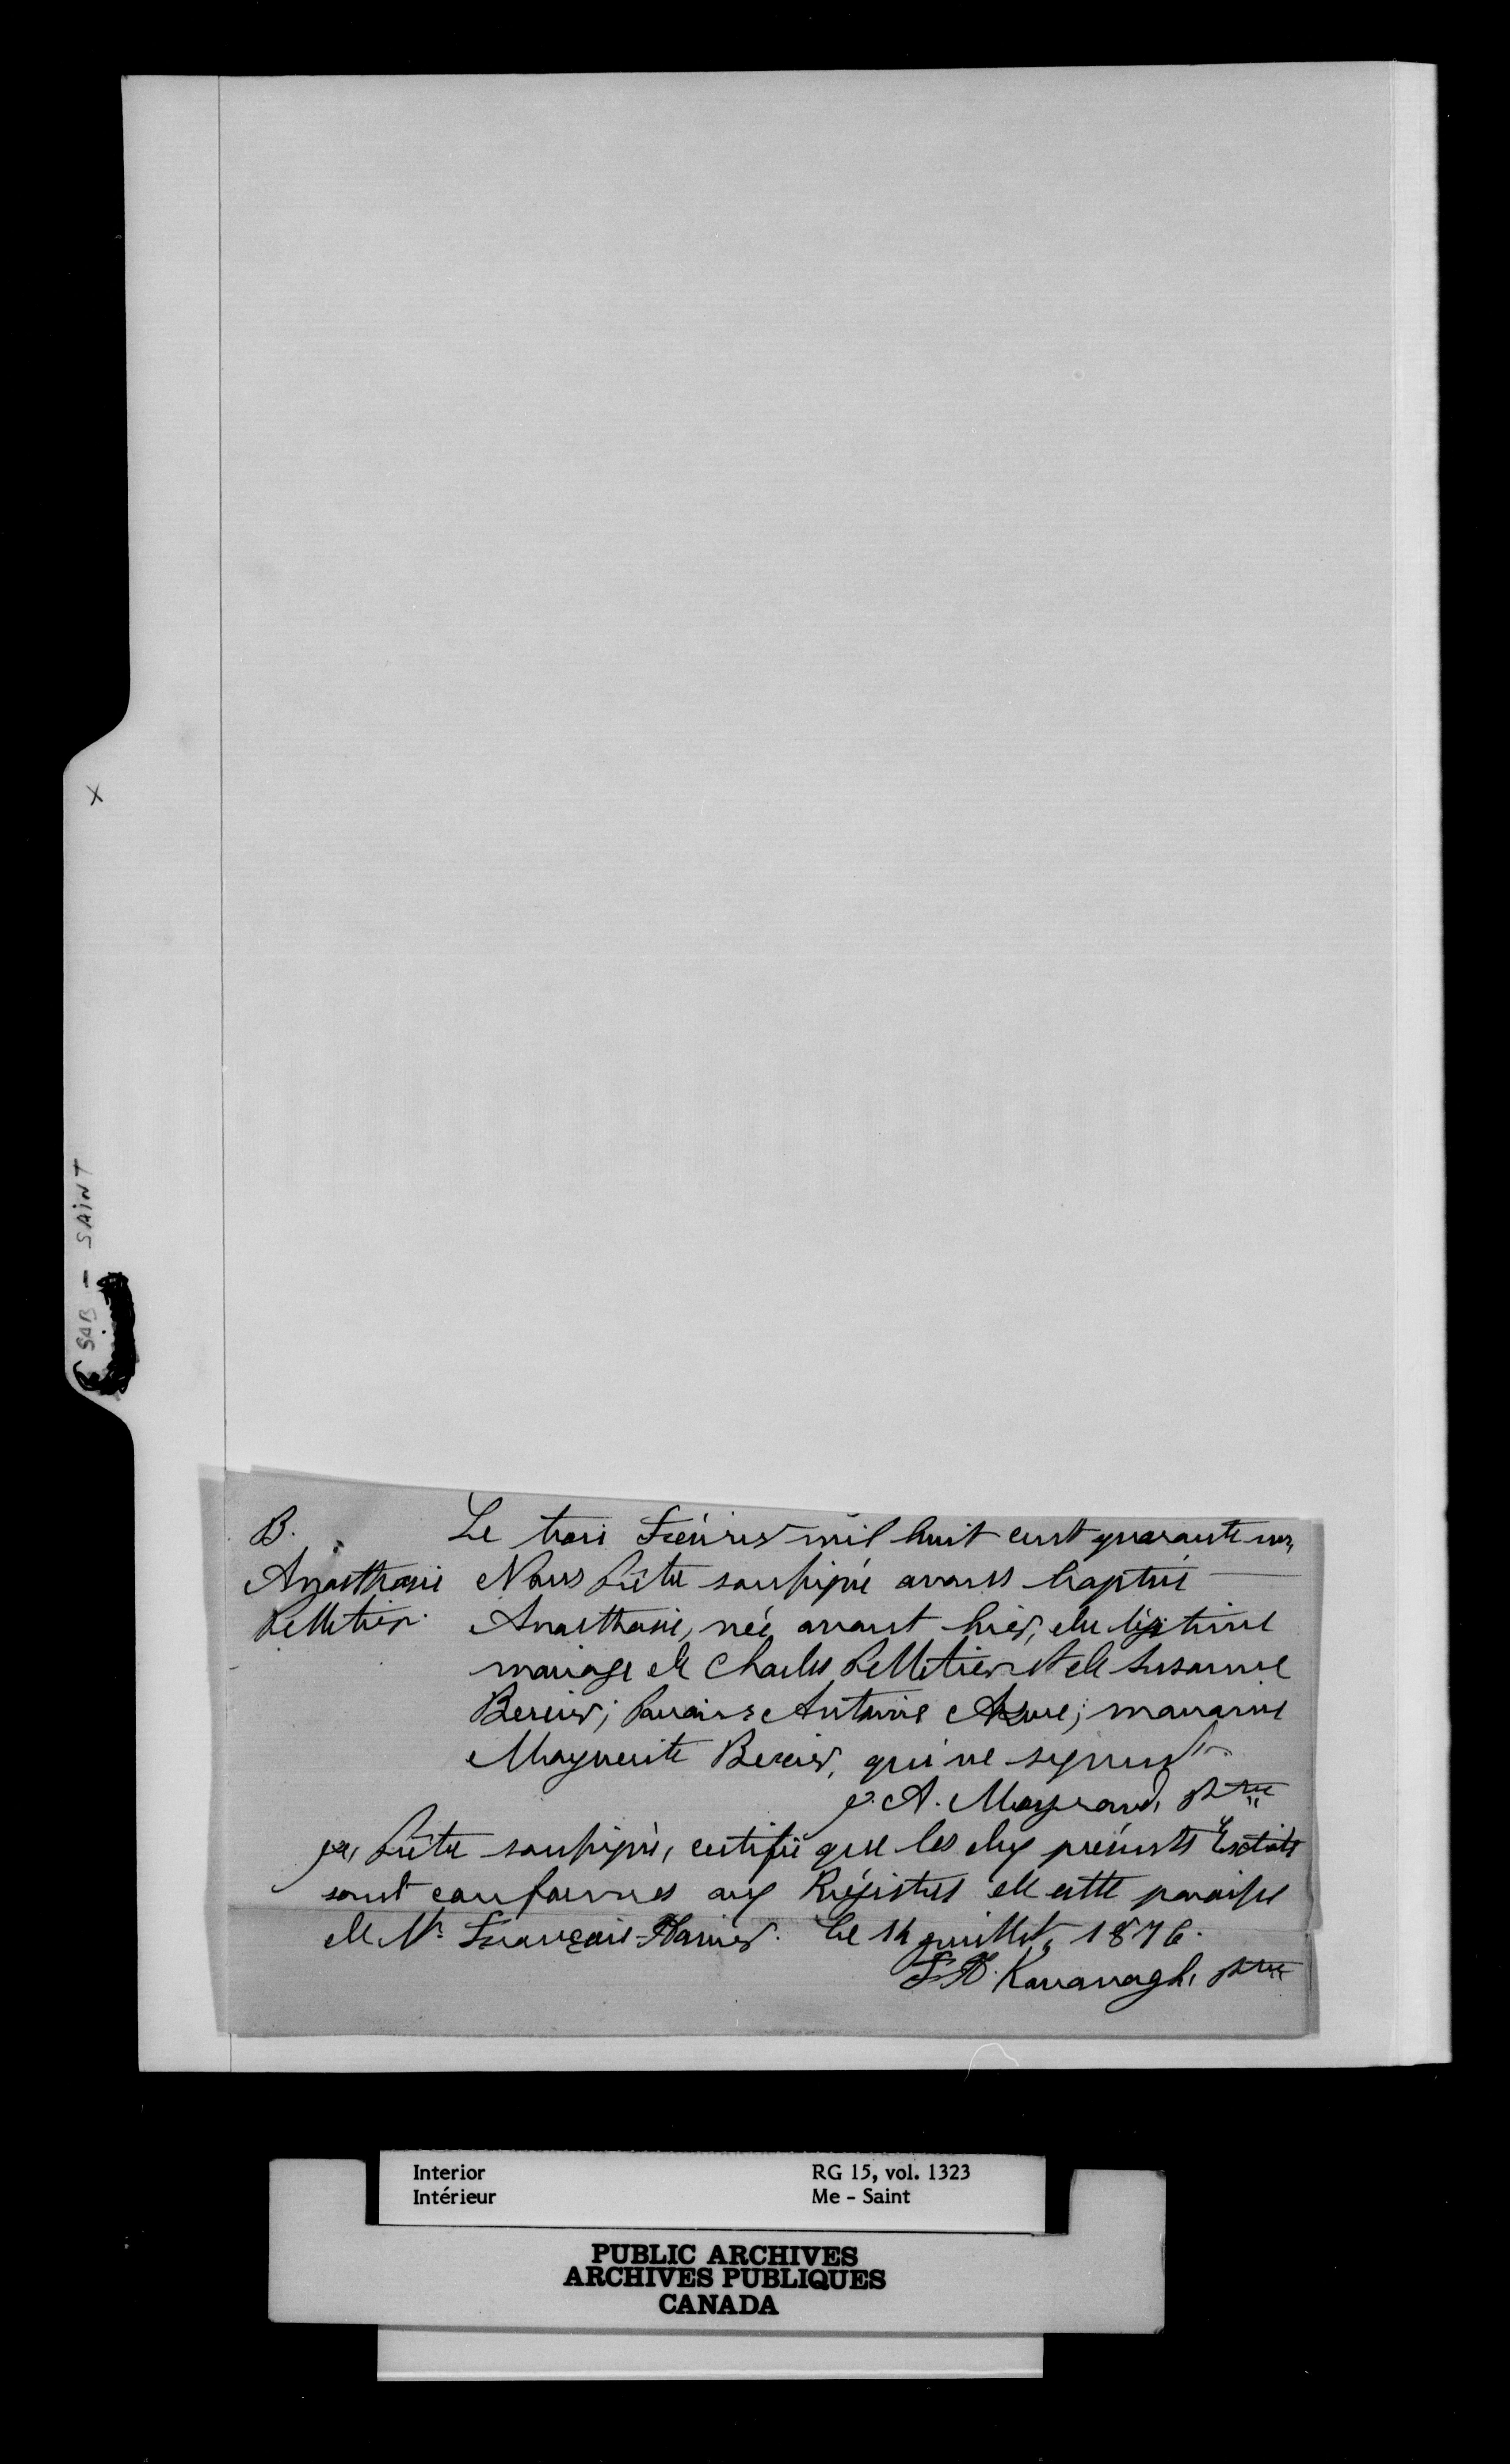 X
SAB - SAINT
B.
Anasthasie
Pelletier.
Le trois Février mil huit cent quarante un,
Nous Prêtre soussigné avons baptisé
Anasthasie, née avant hier, du légitime
mariage de Charles Pelletier et de Susanne
Bercier; Parrain Antoine Azure; marraine
Marguerite Bercier, qui ne signent.
J. A. Mayrand, ptre
Je, Prêtre soussigné, certifie que les deux présents Extraits
sont conformes aux Régistres de cette paroisse
de St. François-Xavier. Ce 14 juillet, 1876.
F. X. Kavanagh, ptre
Interior
Intérieur
RG 15, vol. 1323
Me - Saint
PUBLIC ARCHIVES
ARCHIVES PUBLIQUES
CANADA